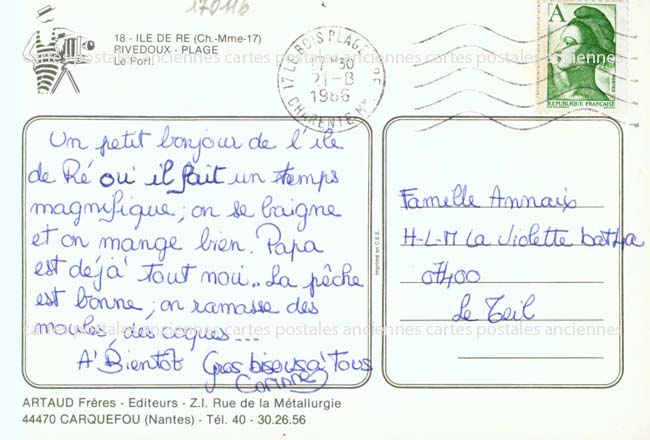 170116
18 - ILE DE RE (Ch.-Mme-17)
RIVEDOUX - PLAGE
Le Port
17 LE BOIS PLAGE
-30
21-8
1986
CHARENTE
A
REPUBLIQUE FRANÇAISE
cartes postales anciennes cartes postales anciennes cartes postales anciennes
Un petit bonjour de l'ile
de Ré ou' il fait un temps
magnifique; on se baigne
et on mange bien. Papa
est dejà tout noir.. La pêche
est bonne; on ramasse des
moules, des coques ...
A' Bientot Gros bisous à Tous
Corinne
Imprimé en C.E.E.
Famille Annaix
H-L-M La Violette bat
07400
Le Teil
cartes postales anciennes cartes postales anciennes cartes postales anciennes
ARTAUD Frères - Editeurs - Z.I. Rue de la Métallurgie
44470 CARQUEFOU (Nantes) - Tél. 40 - 30.26.56